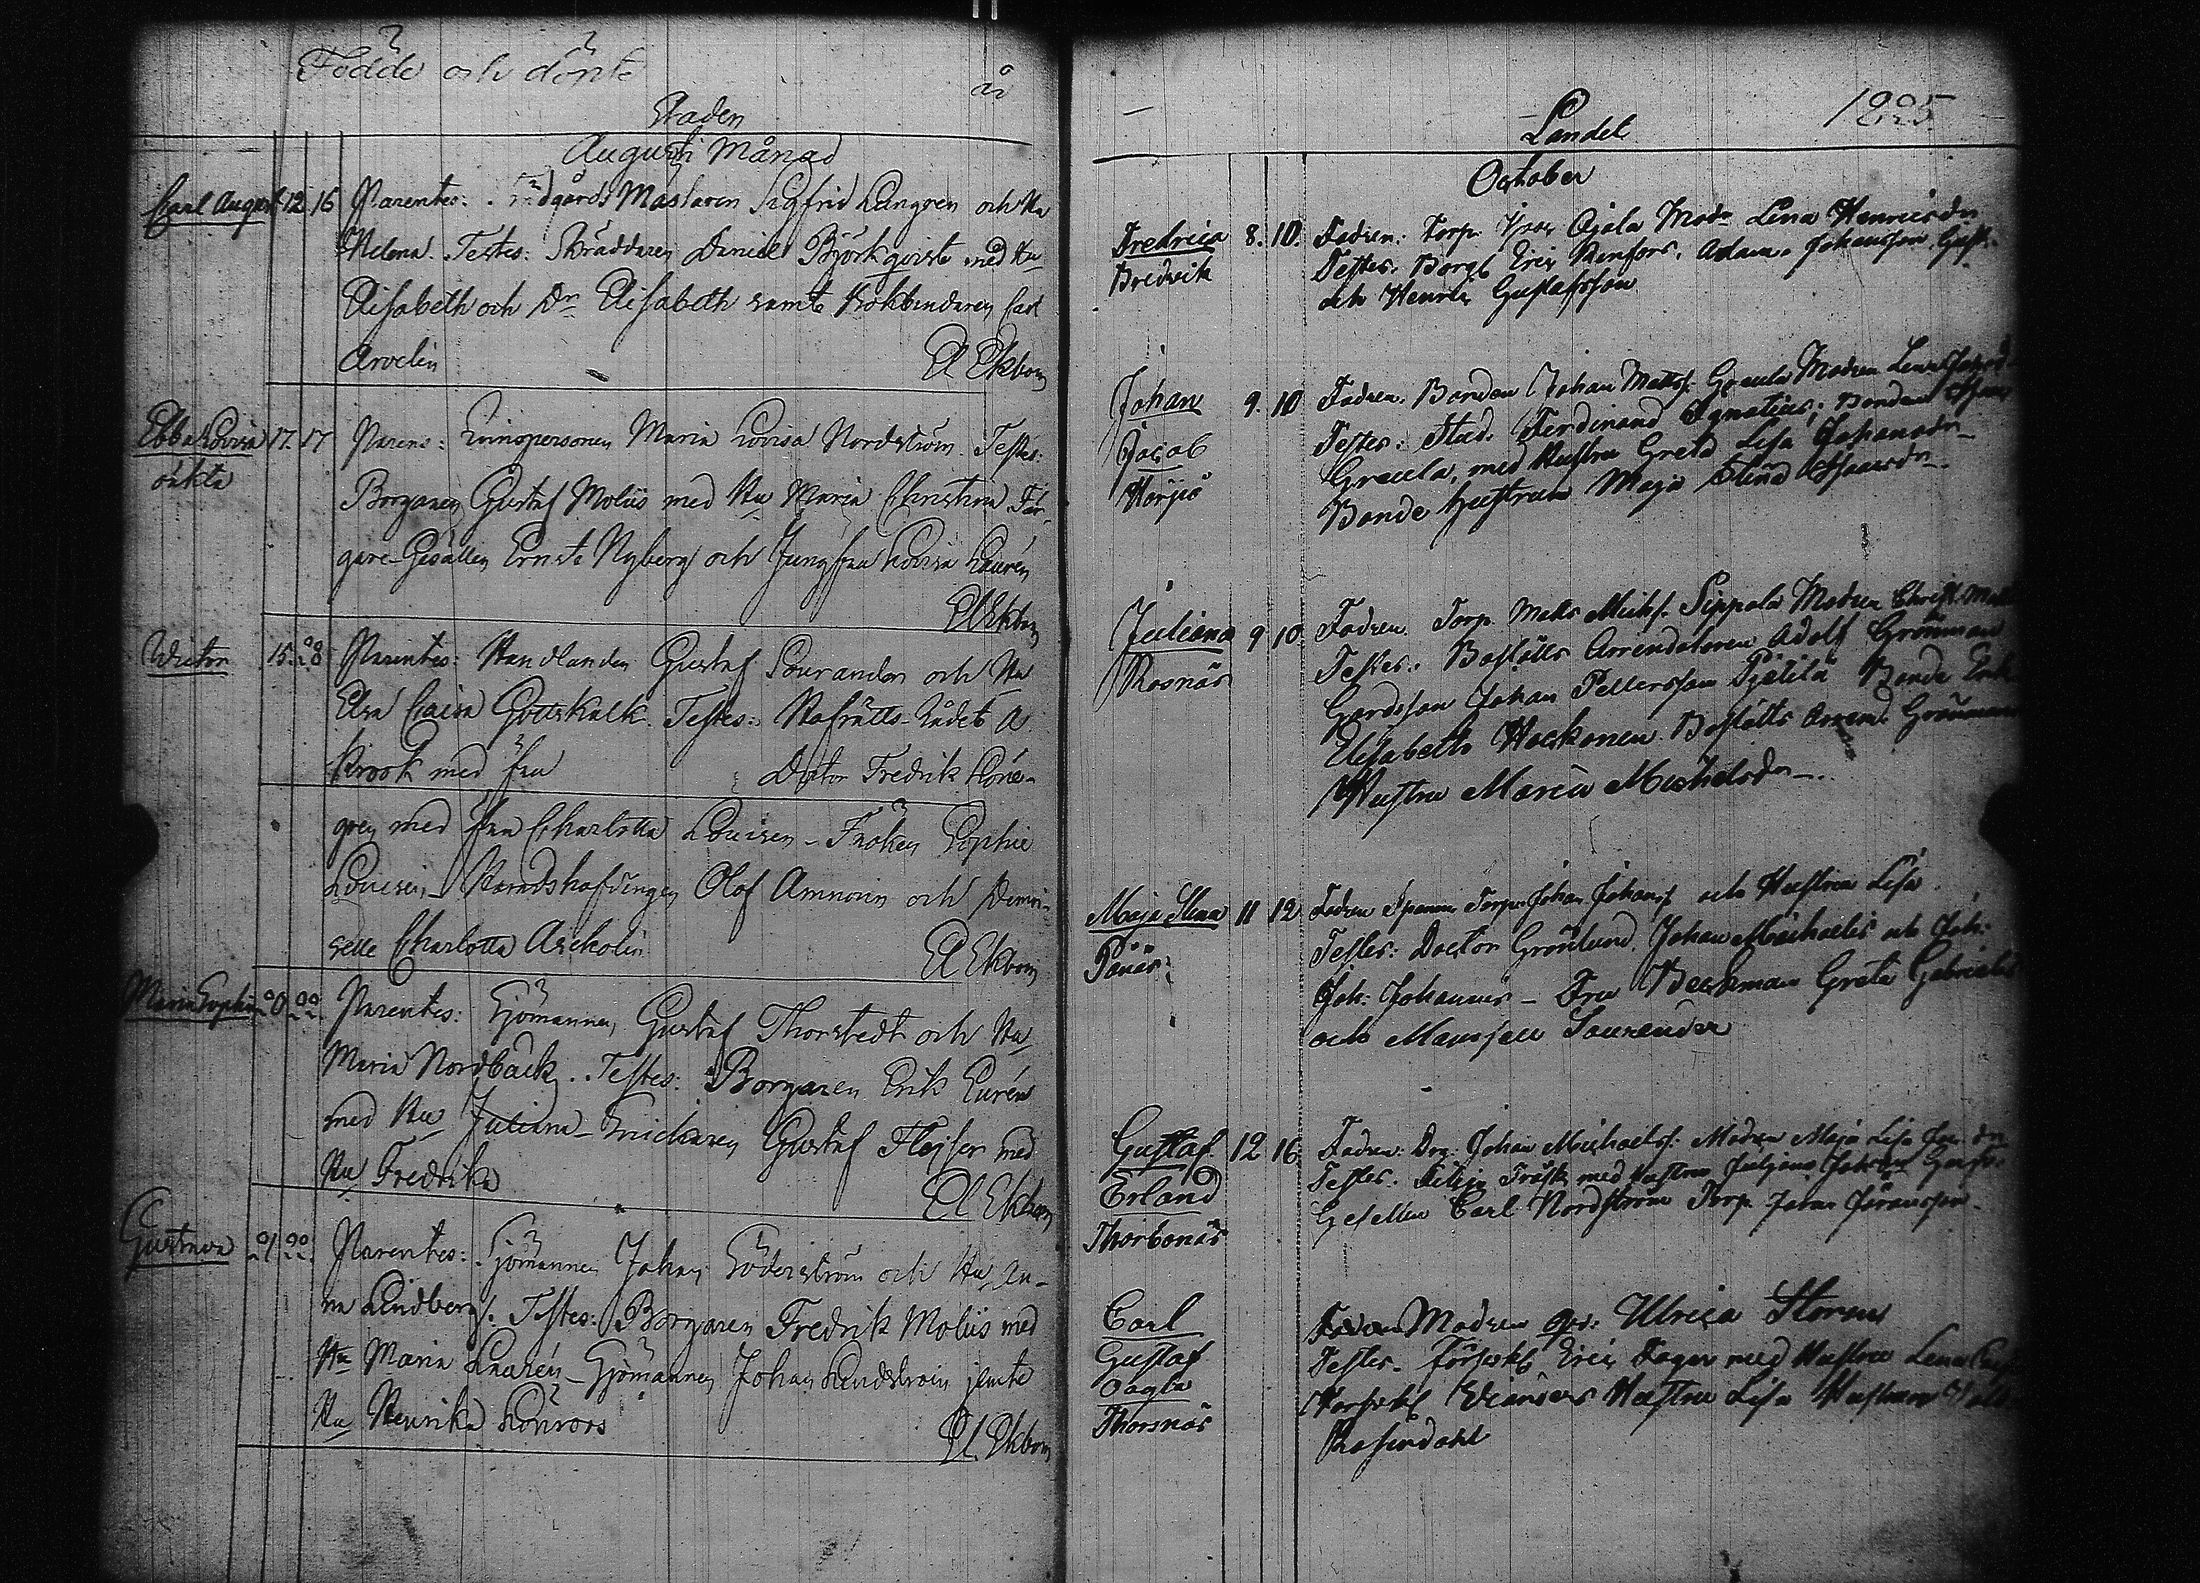 Födde och döpte
år
Staden
Augusti Månad
Carl August 12 16 Parentes: Trädgårds Mästaren Sigfrid Lungren och Hu
Helena. Testes: Skräddaren Daniel Björkqvist med Hu
Elisabeth och Dr Elisabeth samt Bokbindaren Carl
Arvelin El Ekbom
Ebba Lovisa 17. 17 Parens: Qvinspersonen Maria Lovisa Nordström. Testes:
oäkta
Borgaren Gustaf Moliis med Hu Maria Christina Fär-
gare-Gesällen Ernst Nyberg och Jungfru Lovisa Laurén
El Ekbom
Victor 15. 28 Parentes: Handlanden Gustaf Laurander och Hu
Elsa Caisa Gottskalk. Testes: Hofrätts-Rådet A.
Krook med fru Doctor Fredrik Löne-
gren med fru Charlotta Louisen - Fröken Sophie
Häradshöfdingen Olof Amnorin och Demoi-
selle Charlotta Ascholin El Ekbom
Maria Sophia 20 22. Parentes: Sjömannen Gustaf Thorstedt och Hu
Maria Nordbäck. Testes: Borgaren Erik Eurén
med Hu Juliana - Snickaren Gustaf Flojser med
Hu Fredrika El Ekbom
Gustava 21 22. Parentes: Sjömannen Johan Söderström och Hu An-
na Lindberg. Testes: Borgaren Fredrik Moliis med
Hu Maria Laurén - Sjömannen Johan Lindström jemte
Hu Henrika Lönroos El Ekbom
1825
Landet
October
Fredrica 8. 10. Fadren: Torp. Ojala Modr Lena Henricsdr
Bredvik Testes: Borg. Eric Renfors, Adam Johansson
och Henric Gustafsson
Johan 9. 10 Fadren. Bonden Johan Matts. Greula Modren Lena
Jacob Testes: Stud. Ferdinand Ignatius; Bonden
Greula, med Hustru Greta Lisa Johansdr
Horjis Bonde hustrun Maja Stina
Juliana 9 10. Fadren Torp. Matts Michs. Sippola Modren Christ.
Rosnäs Testes: Boställs Arrendatoren Adolf Grönman
Gårdsson Johan Pettersson Bonde
Elisabeth Hockonen. Boställs Arrend. Grönman
Hustru Maria Michelsdr
Maja Stina 11 12. Fadren Torpr Johan Johanss och Hustrun Lisa
Testes: Doctor Grönlund, Johan Michaelis och Joh:
Joh: Johannis - Fru Beckman Greta Gabriels
och Mamsell Laurender
Gustaf 12 16 Fadren: Drg. Johan Michaelss: Modren Maja Lisa
Erland Testes. med Hustrun Juliana
Gesellen Carl Nordström Torp. Johan Göransson
Thorbonäs
Carl Modren Ulrica Storm
Gustaf Testes. Eric Fager med Hustru Lena
Oagta Hustru Lisa
Thorsnäs Rosendahl